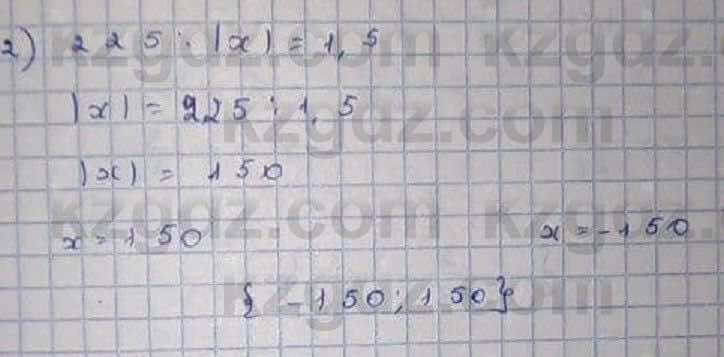 2) 225 : |x| = 1,5
|x| = 225 : 1,5
|x| = 150
x = 150 x = -150
{ -150; 150}
kzgdz.com kzgdz.com
kzgdz.com
kzgdz.com kzgdz.com
kzgdz.com